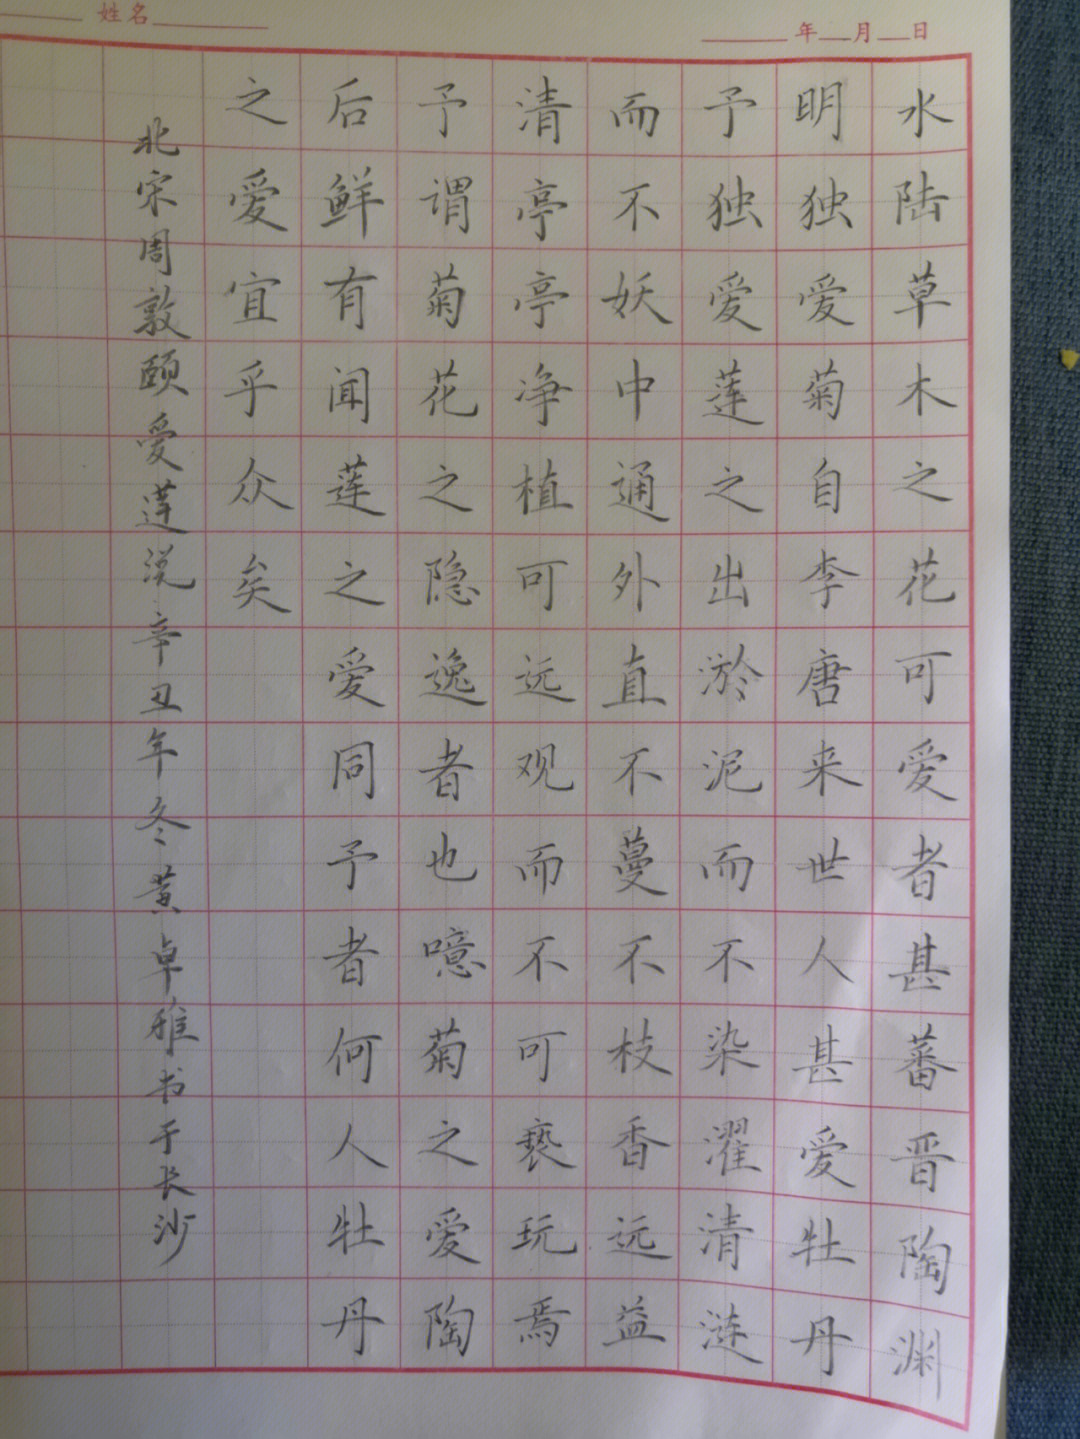 姓名
年 月 日
水陆草木之花可爱者甚蕃晋陶渊
明独爱菊自李唐来世人甚爱牡丹
予独爱莲之出淤泥而不染濯清涟
而不妖中通外直不蔓不枝香远益
清亭亭净植可远观而不可亵玩焉
予谓菊花之隐逸者也噫菊之爱陶
后鲜有闻莲之爱同予者何人牡丹
之爱宜乎众矣
北宋周敦颐爱莲说辛丑年冬黄卓雅书于长沙